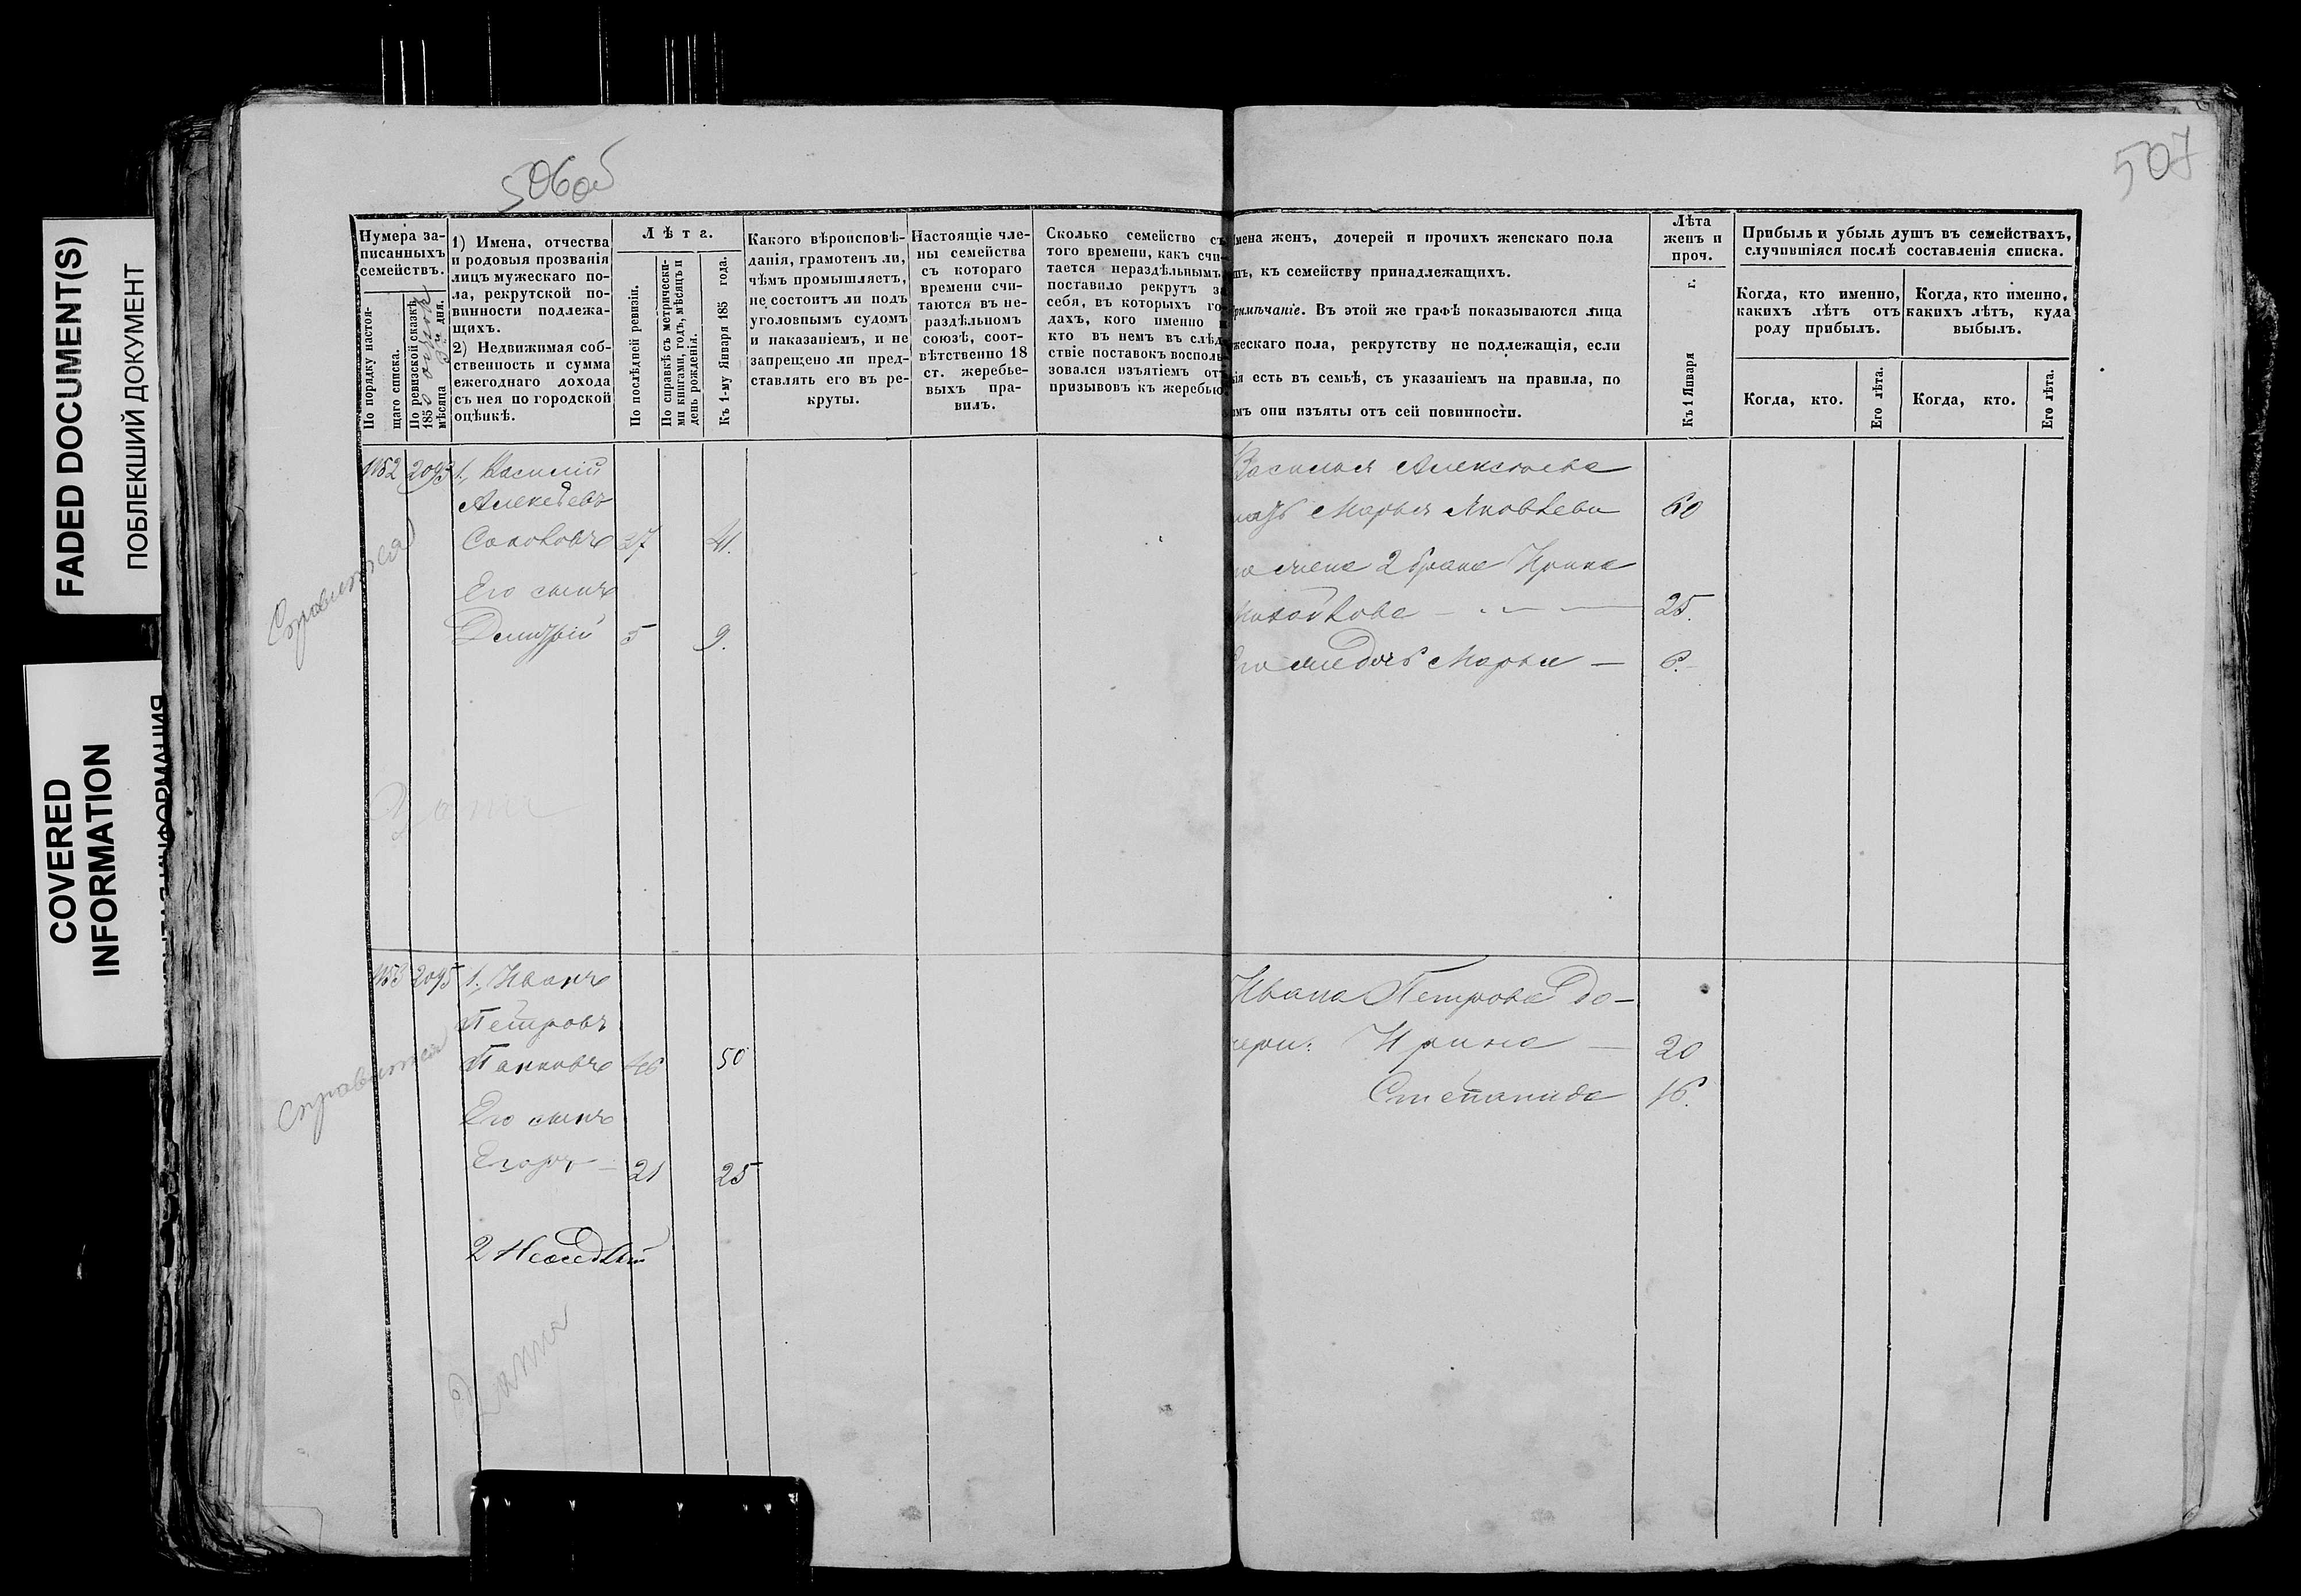 FADED DOCUMENT(S)
ПОБЛЕКШИЙ ДОКУМЕНТ
COVERED
INFORMATION
506об
507
Нумера за-
писанныхъ
семействъ.
По порядку настоя-
щаго списка.
По ревизской сказкѣ
185
мѣсяца дня.
1) Имена, отчества
и родовыя прозванія
лицъ мужескаго по-
ла, рекрутской по-
винности подлежа-
щихъ.
2) Недвижимая соб-
ственность и сумма
ежегоднаго дохода
съ нея по городской
оцѣнкѣ.
Лѣта.
По послѣдней ревизіи.
По справкѣ съ метрически-
ми книгами, годъ, мѣсяцъ и
день рожденія.
Къ 1-му Января 185 года.
Какого вѣроисповѣ-
данія, грамотенъ ли,
чѣмъ промышляетъ,
не состоитъ ли подъ
уголовнымъ судомъ
и наказаніемъ, и не
запрещено ли пред-
ставлять его въ ре-
круты.
Настоящіе чле-
ны семейства
съ котораго
времени счи-
таются въ не-
раздѣльномъ
союзѣ, соот-
вѣтственно 18
ст. жеребье-
выхъ пра-
вилъ.
Сколько семейство съ
того времени, какъ счи-
тается нераздѣльнымъ
поставило рекрутъ за
себя, въ которыхъ го-
дахъ, кого именно и
кто въ немъ въ слѣд
ствіе поставокъ восполь-
зовался изъятіемъ отъ
призывовъ къ жеребью
имена женъ, дочерей и прочихъ женскаго пола
шъ, къ семейству принадлежащихъ.
римѣчаніе. Въ этой же графѣ показываются лица
жескаго пола, рекрутству не подлежащія, если
кія есть въ семьѣ, съ указаніемъ на правила, по
имъ они изъяты отъ сей повинности.
Лѣта
женъ и
проч.
Къ 1 Января г.
Прибыль и убыль душъ въ семействахъ,
случившіяся послѣ составленія списка.
Когда, кто именно,
какихъ лѣтъ отъ
роду прибылъ.
Когда, кто именно,
какихъ лѣтъ, куда
выбылъ.
Когда, кто.
Его лѣта.
Когда, кто.
Его лѣта.
1152 2093 1., Василій
Алексѣевъ
Соколовъ 37 41.
Его сынъ
Дмитрій 5 9.
Справиться
Василья Алексѣева
мать Марья Яковлева 60
го жена 2 брака Ирина
25.
Его же дочь Марья — 6.
1153 2095 1., Иванъ
Петровъ
Панковъ 46 50
Его сынъ
Егоръ — 21 25
Справиться
Ивана Петрова до-
чери: Ирина — 20
Степанида 16.